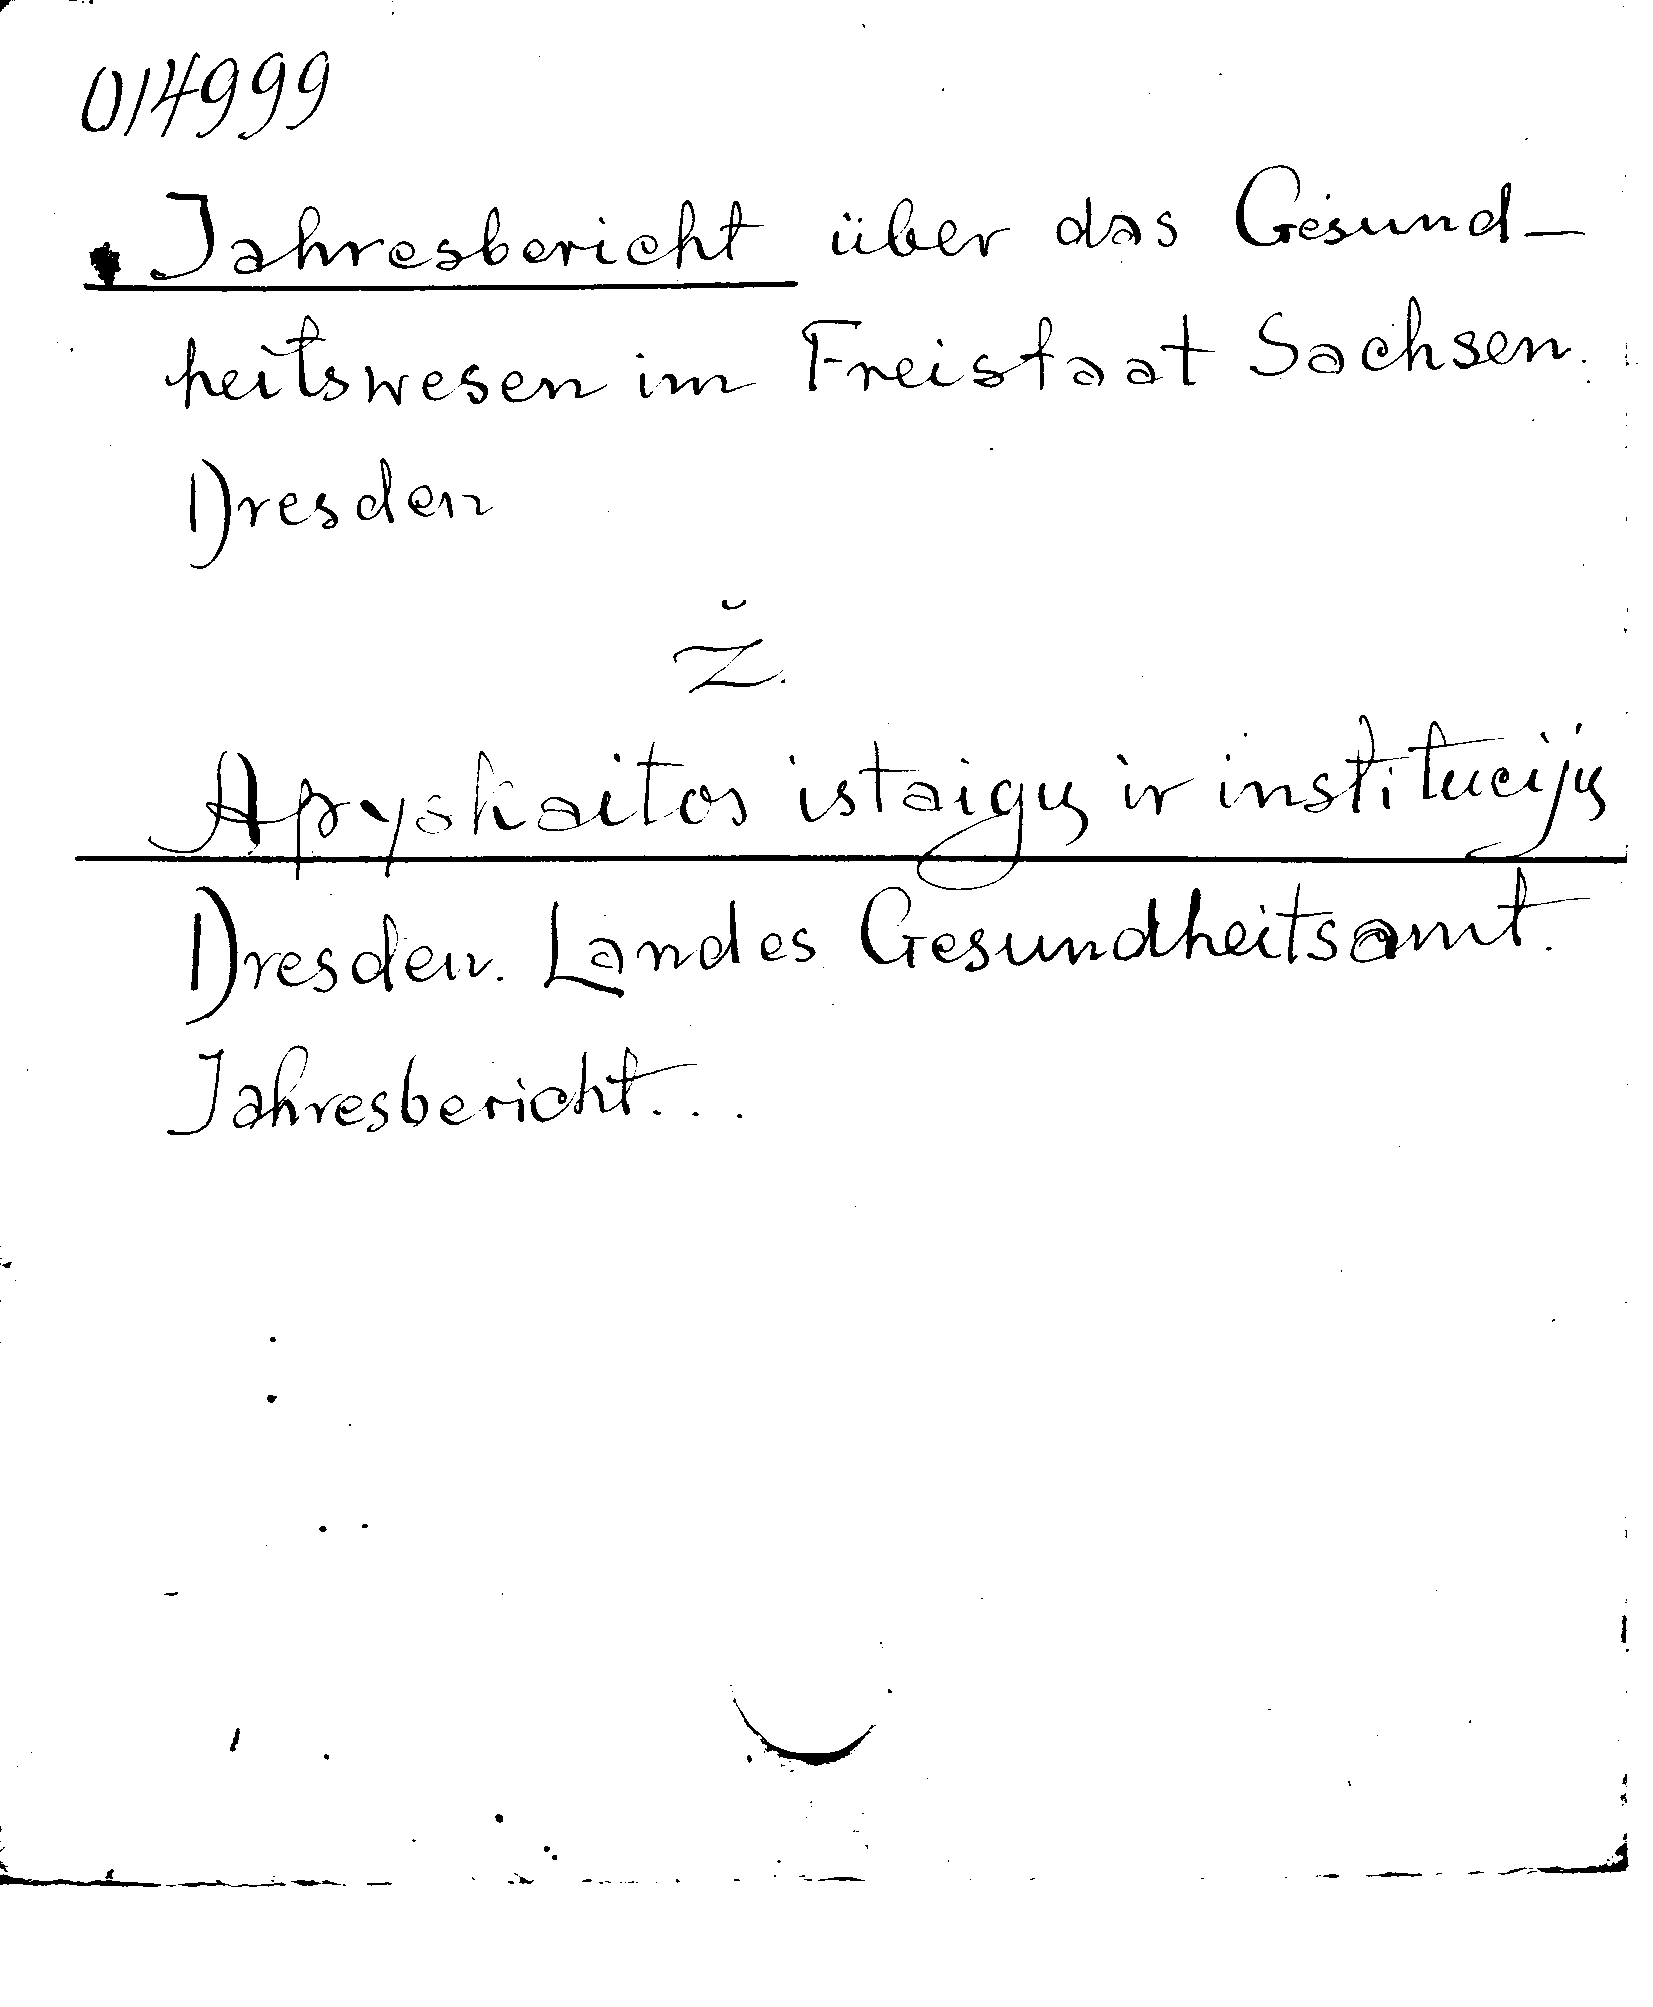 014999
Jahresbericht über das Gesund-
heitswesen im Freistaat Sachsen.
Dresden
Ž.
Apyskaitos istaigų ir institucijų
Dresden. Landes Gesundheitsamt.
Jahresbericht...